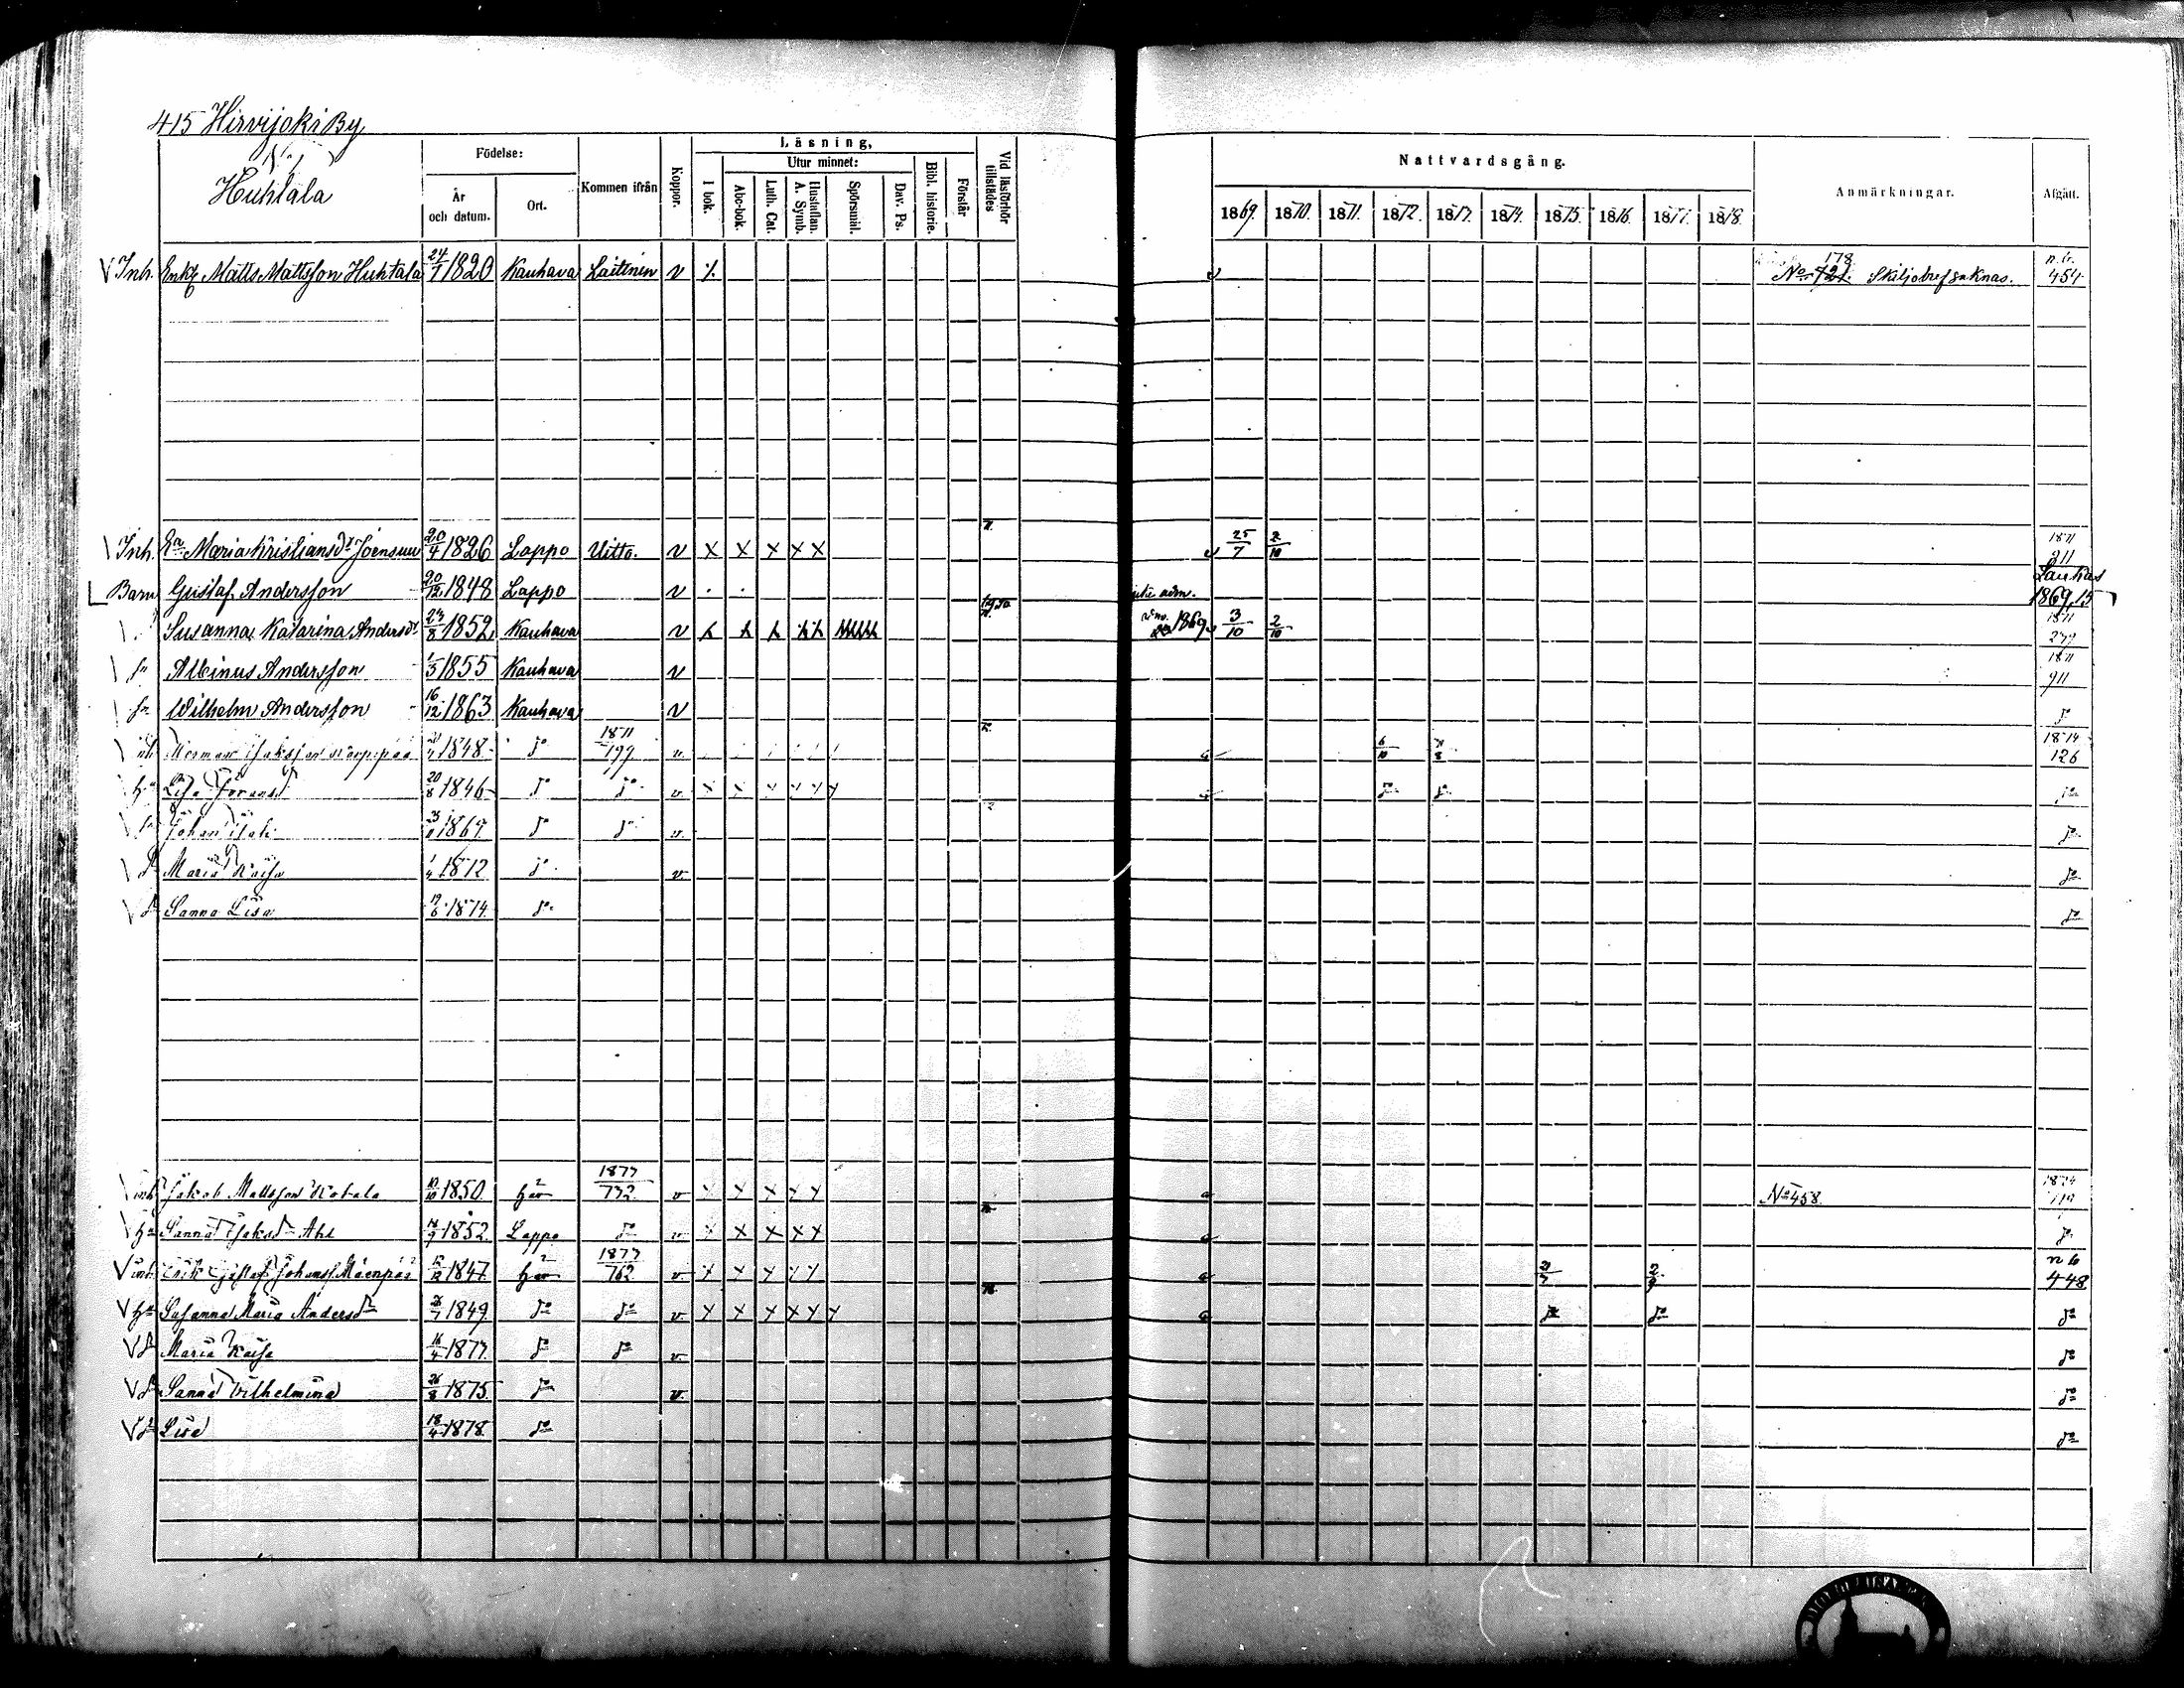 415 Hirvijoki By
No 1
Huhtala
Födelse:
År och datum.
Ort.
Kommen ifrån
Koppor.
Läsning,
I bok.
Utur minnet:
Abc-bok.
Luth. Cat.
Hustaflan. A. Symb.
Spörsmål.
Dav. Ps.
Bibl. historie.
Förstår
Vid läsförhör tillstädes
Nattvardsgång.
1869. 1870. 1871. 1872. 1873. 1874. 1875. 1876. 1877. 1878
Anmärkningar.
Afgått.
178
V Inh. Enkl Matts Mattsson Huhtala 24/1 1820 Kauhava Laitinen v No 721. Skiljobref saknas. n.b. 454
Inh. Ea Maria Kristiansdr Joensuu 20/4 1826 Lappo Uitto. v x x x x x 25/7 2/10 1871 911
Barn Gustaf Andersson 20/12 1848 Lappo v adm. Laukas 1869, 15
Susanna Katarina Andersdr 24/8 1852 Kauhava v 1869 3/10 2/10 1871
sn Albinus Andersson 1/5 1855 Kauhava v 1871 911
sn Wilhelm Andersson 16/12 1863 Kauhava v do
1848 do 1871 199 v 6/10 1874 126
hu Lisa 20/8 1846 do do v x x x x x x do do do
sn Johan 1869 do do v do
dr Maria Kaisa 1/4 1872 do v do
dr Sanna Lisa 1874 do do
inh Jakob Mattsson Kotala 10/10 1850 här 1873 732 v x x x x x No 458. 1874
hu Sanna Isaksdr Aho 1852 Lappo do v x x x x x do
V inh. Erik Gustaf Johanss. Mäenpää 1847 här 1873 762 v x x x x x 2/9 n b 448
V hu Susanna Maria Andersdr 1849 do do v x x x x x x do do do
V dr Maria Kaisa 16/4 1873 do do v do
V dr Sanna Vilhelmina 26/8 1875 do v do
V dr Lisa 18/4 1878 do do